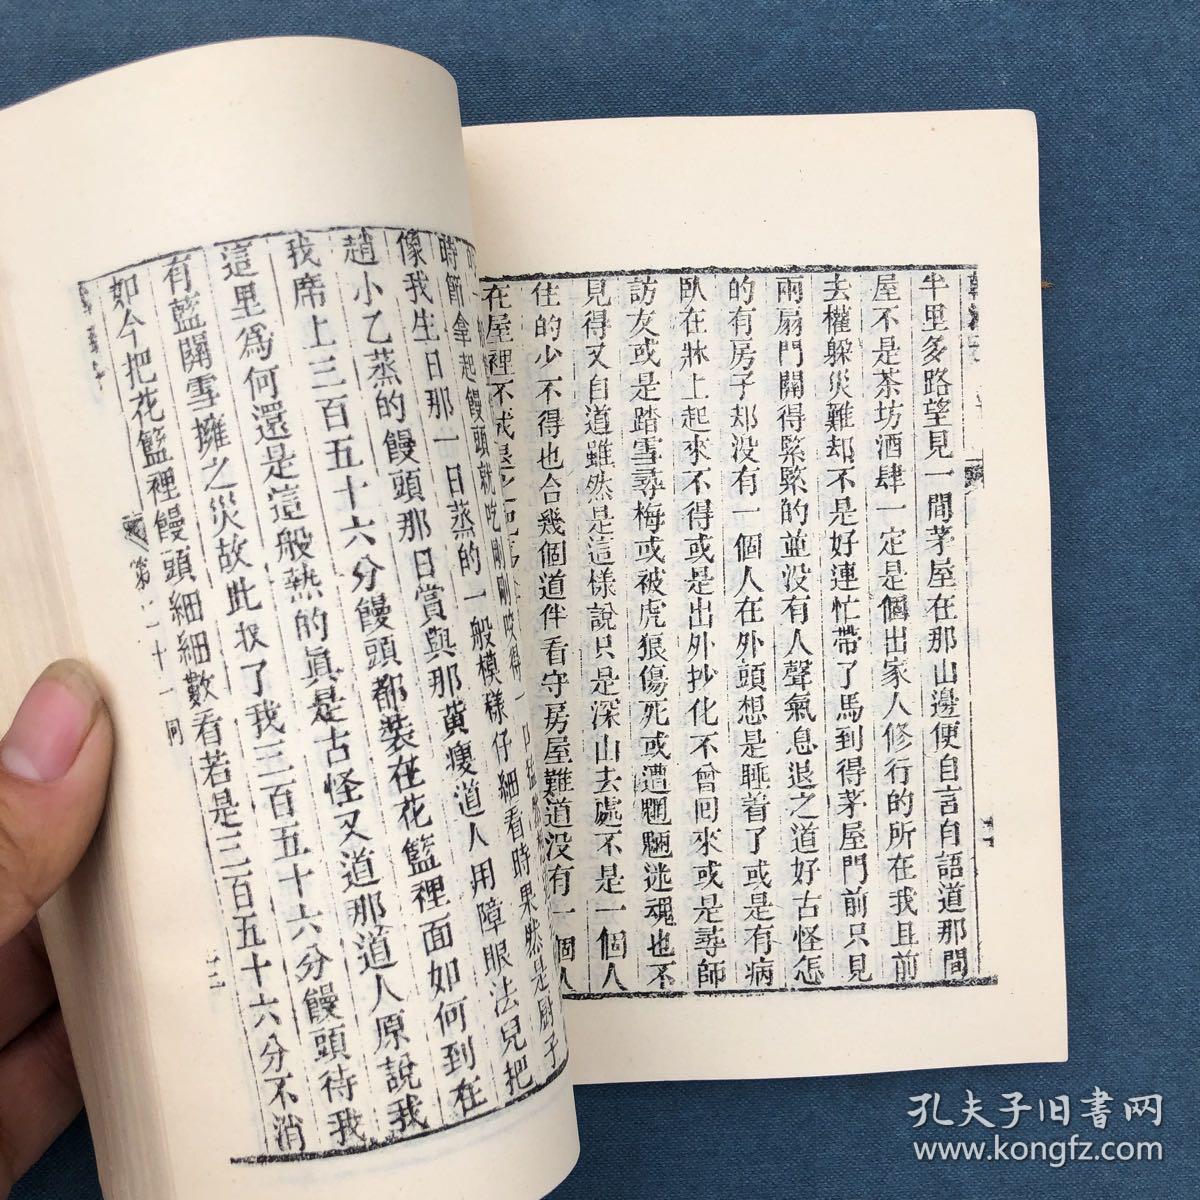 半里多路望見一間茅屋在那山邊便自言自語道那間
屋不是茶坊酒肆一定是個出家人修行的所在我且前
去權躲災難却不是好連忙帶了馬到得茅屋門前只見
兩扇門關得緊緊的並没有人聲氣息退之道好古怪怎
的有房子却没有一個人在外頭想是睡着了或是有病
臥在牀上起來不得或是出外抄化不曾囘來或是尋師
訪友或是踏雪尋梅或被虎狼傷死或遭魍魎迷魂也不
見得又自道雖然是這樣說只是深山去處不是一個人
住的少不得也合幾個道伴看守房屋難道没有一個人
在屋裡不成退之
時節拿起饅頭就吃剛剛咬得一口
像我生日那一日蒸的一般模樣仔細看時果然是廚子
趙小乙蒸的饅頭那日賞與那黃瘦道人用障眼法兒把
我席上三百五十六分饅頭都裝在花籃裡面如何到在
這里爲何還是這般熱的眞是古怪又道那道人原說我
有藍關雪擁之災故此收了我三百五十六分饅頭待我
如今把花籃裡饅頭細細數看若是三百五十六分不消
第二十一囘
十二
孔夫子旧書网
www.kongfz.com